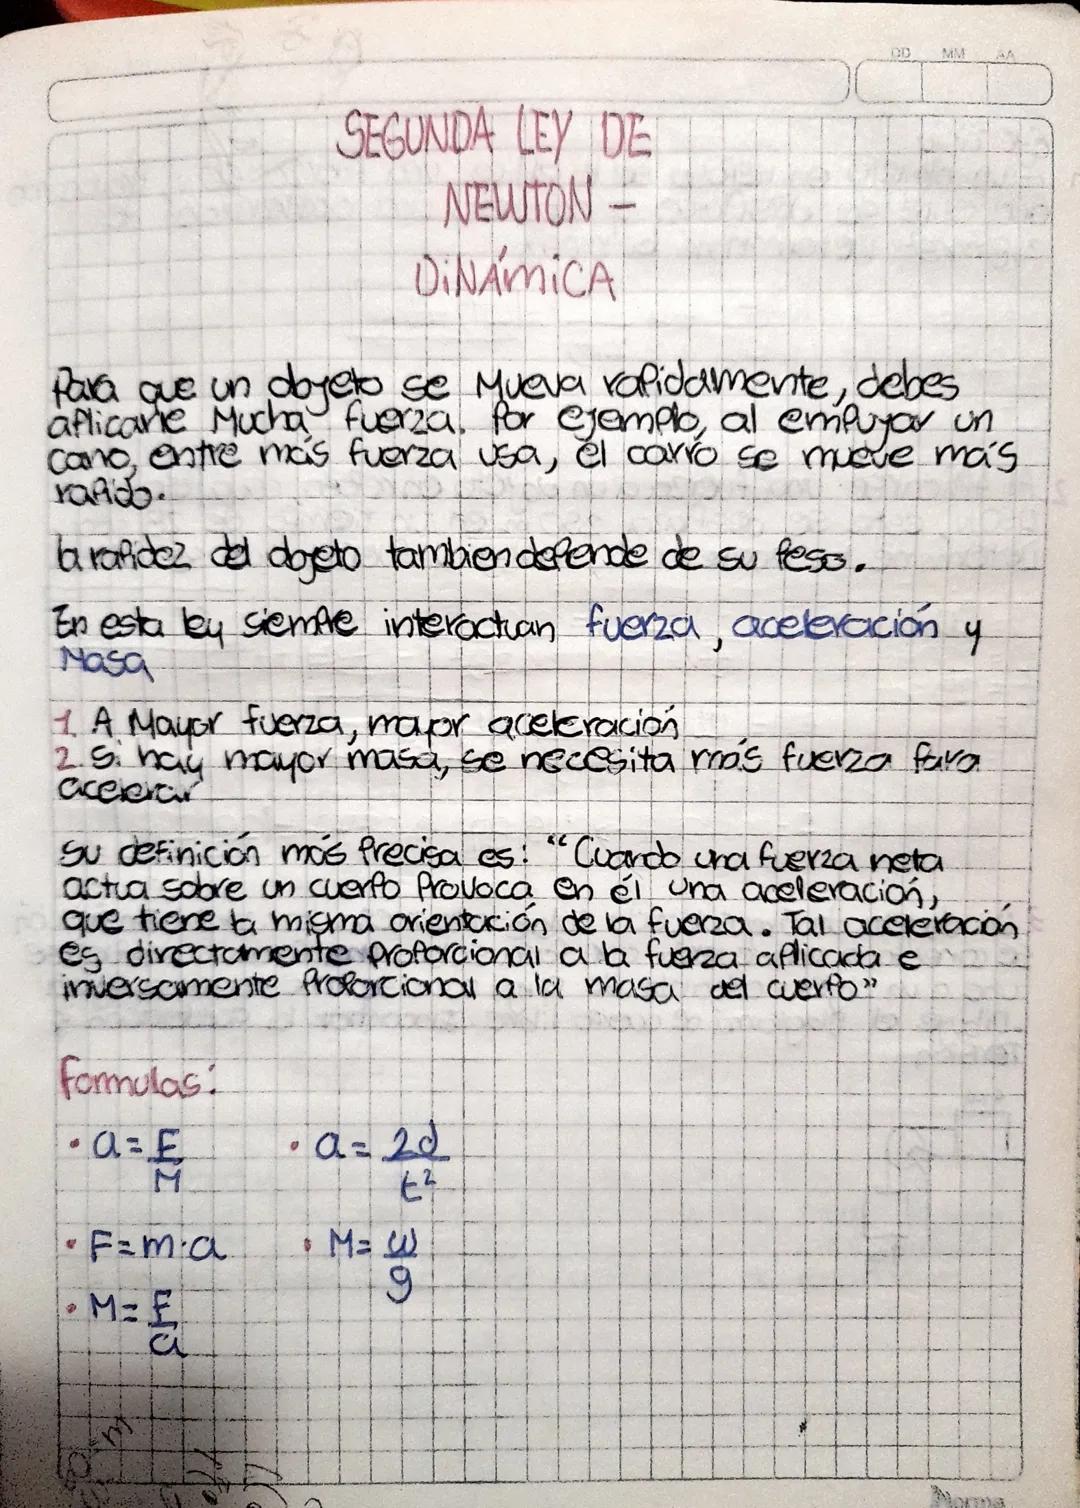 DD MM AA
SEGUNDA LEY DE
NEWTON -
DINÁMICA
Para que un objeto se Mueva rapidamente, debes
aplicarle Mucha fuerza. Por ejemplo, al empujar un
carro, entre más fuerza usa, el carro se mueve más
rapido.
la rapidez del objeto tambien depende de su peso.
En esta ley siempre interactuan fuerza, aceleración y
Masa
1. A Mayor fuerza, mayor aceleración
2. Si hay mayor masa, se necesita más fuerza para
acelerar
su definición más Precisa es: "Cuando una fuerza neta
actua sobre un cuerpo Provoca en él una aceleración,
que tiene la misma orientación de la fuerza. Tal aceleración
es directamente proporcional a la fuerza aplicada e
inversamente Proporcional a la masa del cuerpo"
formulas:
• a = F/M • a = 2d/t²
• F = m·a • M = w/g
• M = F/a
Norma